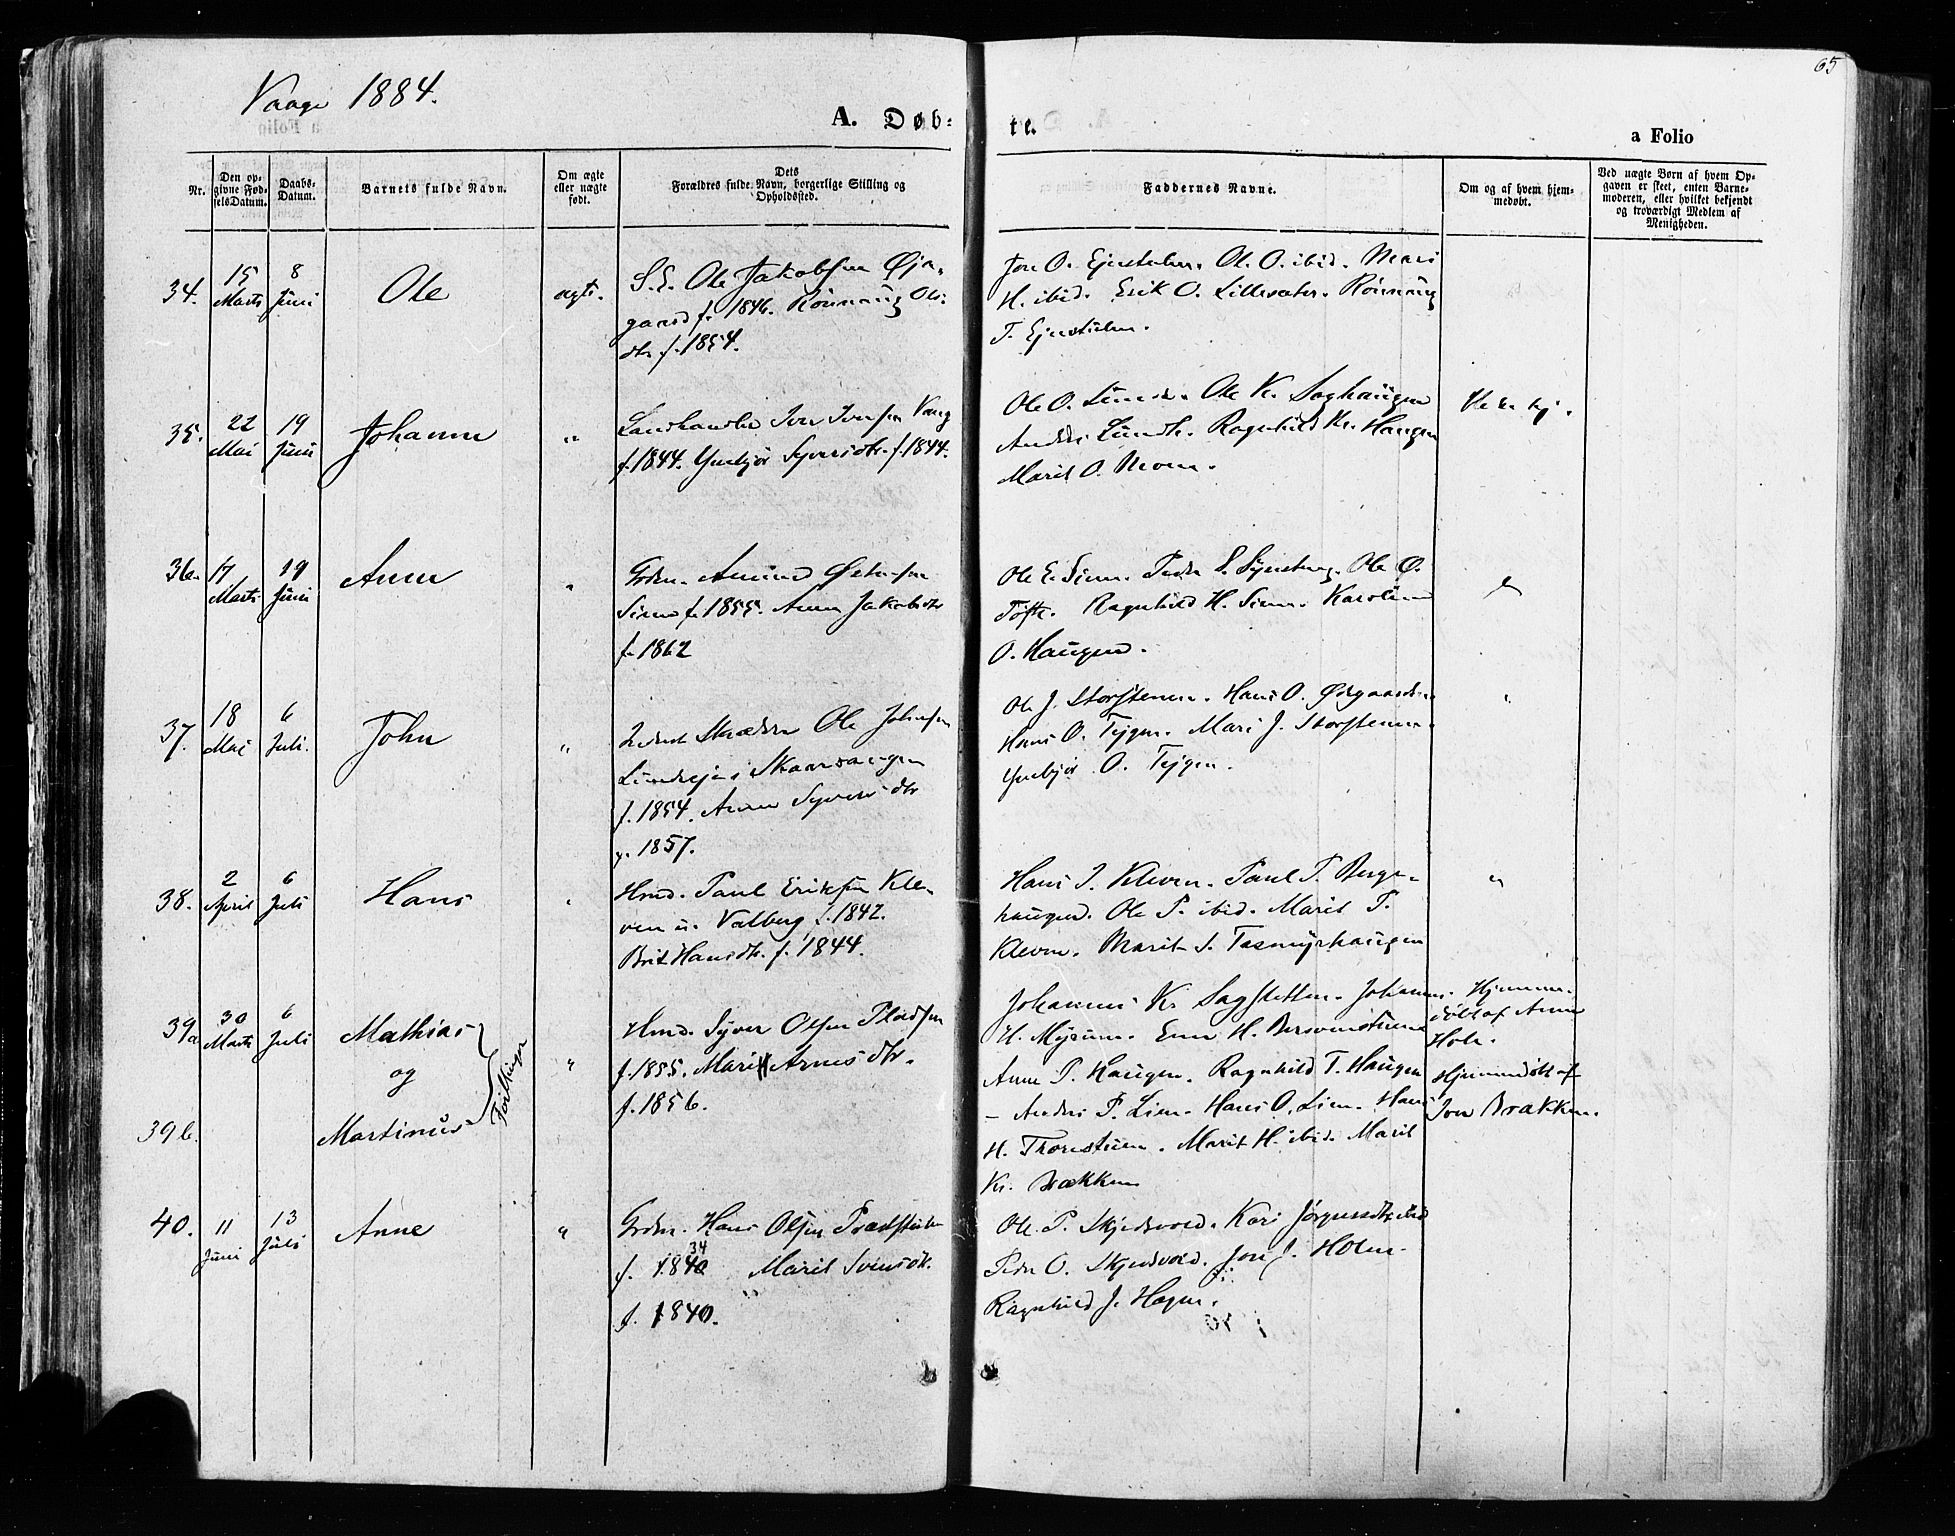 65
Vaage 1884.
A. Døb-
te.
a Folio
Nr.
Den op-
givne Fød-
selsDatum.
Daabs-
Datum.
Barnets fulde Navn.
Om ægte
eller uægte
født.
Dets
Forældres fulde Navn, borgerlige Stilling og
Opholdssted.
Faddernes Navne.
Om og af hvem hjem-
medøbt.
Ved uægte Børn af hvem Op-
gaven er skeet, enten Barne-
moderen, eller hvilket bekjendt
og troværdigt Medlem af
Menigheden.
34.
15
Marts
8
Juni
Ole
ægte.
S. E. Ole Jakobsen Øja-
gaard f. 1846. Rönnaug Ols-
dtr f. 1854.
Jon O. Ole O. ibid. Mari
H. ibid. Erik O. Lillesæter. Rönnaug
T.
35.
22
Mai
19
Juni
Johanne
"
Landhandler Iver Iversen Vang
f. 1844. Ynbjør Syversdtr. f. 1844.
Ole O. Ole K. Soghaugen
Ragnhild Kr. Haugen
Marit O. Moen.
36.
17
Marts
19
Juni
Anne
"
Grdm. Amund Østensen
f. 1855. Anne Jakobsdtr
f. 1862
Ole E. Peder S. Ole O.
Tofte. Ragnhild H. Karoline
O. Haugen.
37.
18
Mai
6
Juli.
John
"
Skrædder Ole Johnsen
i Skaarvangen
f. 1854. Anne Syversdtr
f. 1857.
Ole J. Storstenen. Hans O. Øygaarden
Hans O. Tejgen. Mari J. Storstenen.
Ynbjør O. Tejgen.
"
38.
2
April
6
Juli
Hans
"
Hmd. Paul Eriksen Kle-
ven u. Valberg f. 1842.
Brit Hansdtr. f. 1844.
Hans J. Kleven. Paul P. Berge-
haugen. Ole P. ibid. Marit P.
Kleven. Marit J.
"
39a
30
Marts
6
Juli
Mathias
og
39b.
Martinus
Tvillinger
"
Hmd. Syver Olsen Pladsen
f. 1855. Marit Arnesdtr.
f. 1856.
Johannes Kr. Sagstetten. Johannes
H. H.
Anne P. Haugen. Ragnhild T. Haugen
- Anders P. Lien. Hans O. Lien. Hans
H. Thorestuen. Marit H. ibid. Marit
Kr. Brækken
Hjemme-
døbt af Anne
Hole.
Hjemmedøbt af
Jon Brækken.
40.
11
Juni
13
Juli
Anne
"
Grdm. Hans Olsen
34
f. 1840 Marit Svensdtr.
f. 1840.
Ole P. Skjedsvold. Kari ibid
Peder O. Skjedsvold. Jon J. Holen.
Ragnhild J. Hagen.